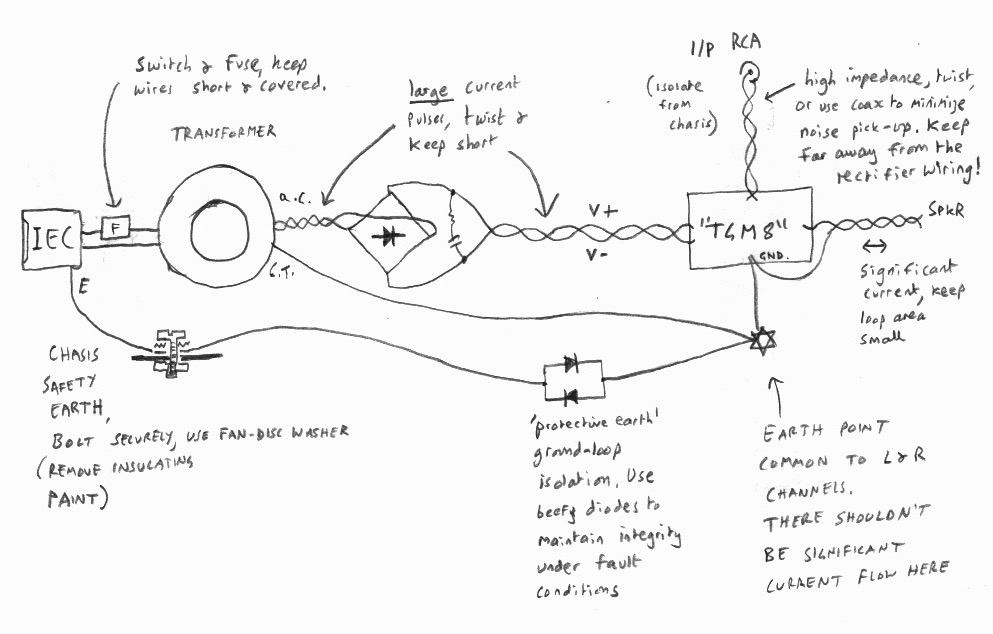 Switch & Fuse, keep
wires short & covered.
TRANSFORMER
large current
pulses, twist &
keep short
I/P RCA
(isolate
from
chasis)
high impedance, twist,
or use coax to minimize
noise pick-up. Keep
far away from the
rectifier wiring!
IEC
F
a.c.
C.T.
E
V+
V-
"TGM8"
GND.
SPKR
Significant
current, keep
loop area
small
CHASIS
SAFETY
EARTH,
BOLT SECURELY, USE FAN-DISC WASHER
(REMOVE INSULATING
PAINT)
'protective earth'
ground-loop
isolation, Use
beefy diodes to
maintain integrity
under fault
conditions
EARTH POINT
COMMON TO L&R
CHANNELS.
THERE SHOULDN'T
BE SIGNIFICANT
CURRENT FLOW HERE